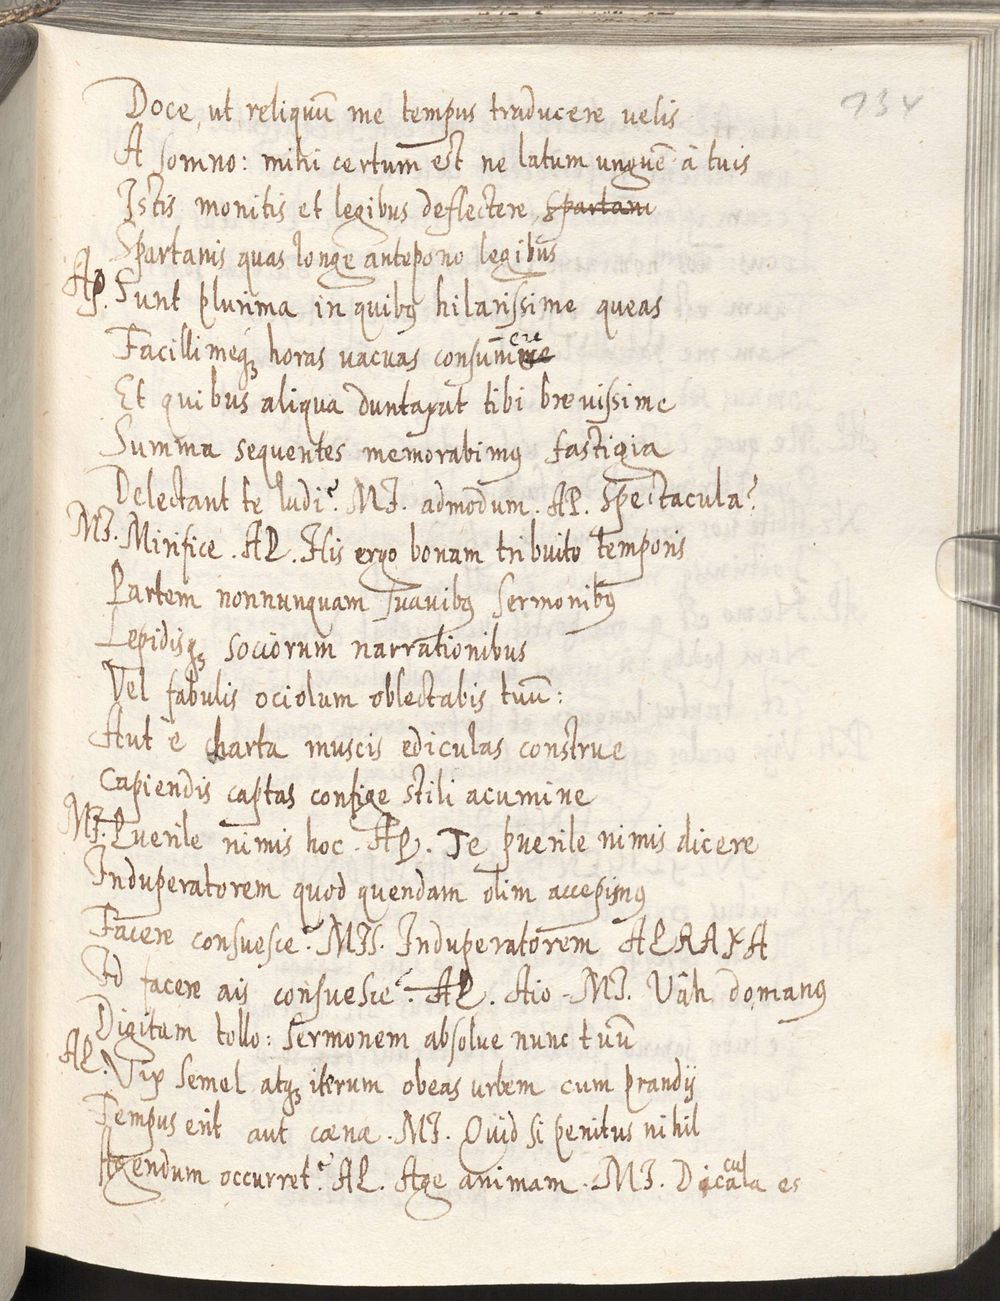 734
Doce, ut reliquū me tempus traducere velis
A somno: mihi certum est ne latum unguē à tuis
Istis monitis et legibus deflectere, Spartam
Spartanis quas longe antepono legibus
AP. Sunt plurima in quibus hilarissime queas
Facillimeq; horas vacuas consumere
Et quibus aliqua duntaxat tibi brevissime
Summa sequentes memorabimus fastigia
Delectant te ludi? MI. admodum. AP. Spectacula?
MI. Mirifice. AP. His ergo bonam tribuito temporis
Partem nonnunquam suavibus sermonibus
Lepidisq; sociorum narrationibus
Vel fabulis ociolum oblectabis tuū:
Aut è charta muscis ediculas construe
Capiendis captas confige stili acumine
MI. Puerile nimis hoc. AP. Te puerile nimis dicere
Induperatorem quod quendam olim accepimus
Facere consuesce? MI. Induperatorem APRAXA
Id facere ais consuesce? AP. Aio. MI. Vāh domanus
Digitum tollo: sermonem absolve nunc tuū
AP. Vix semel atq; iterum obeas urbem cum prandij
Tempus erit aut cœnæ. MI. Quid si penitus nihil
Agendum occurret? AP. Age animam. MI. Dicacula es